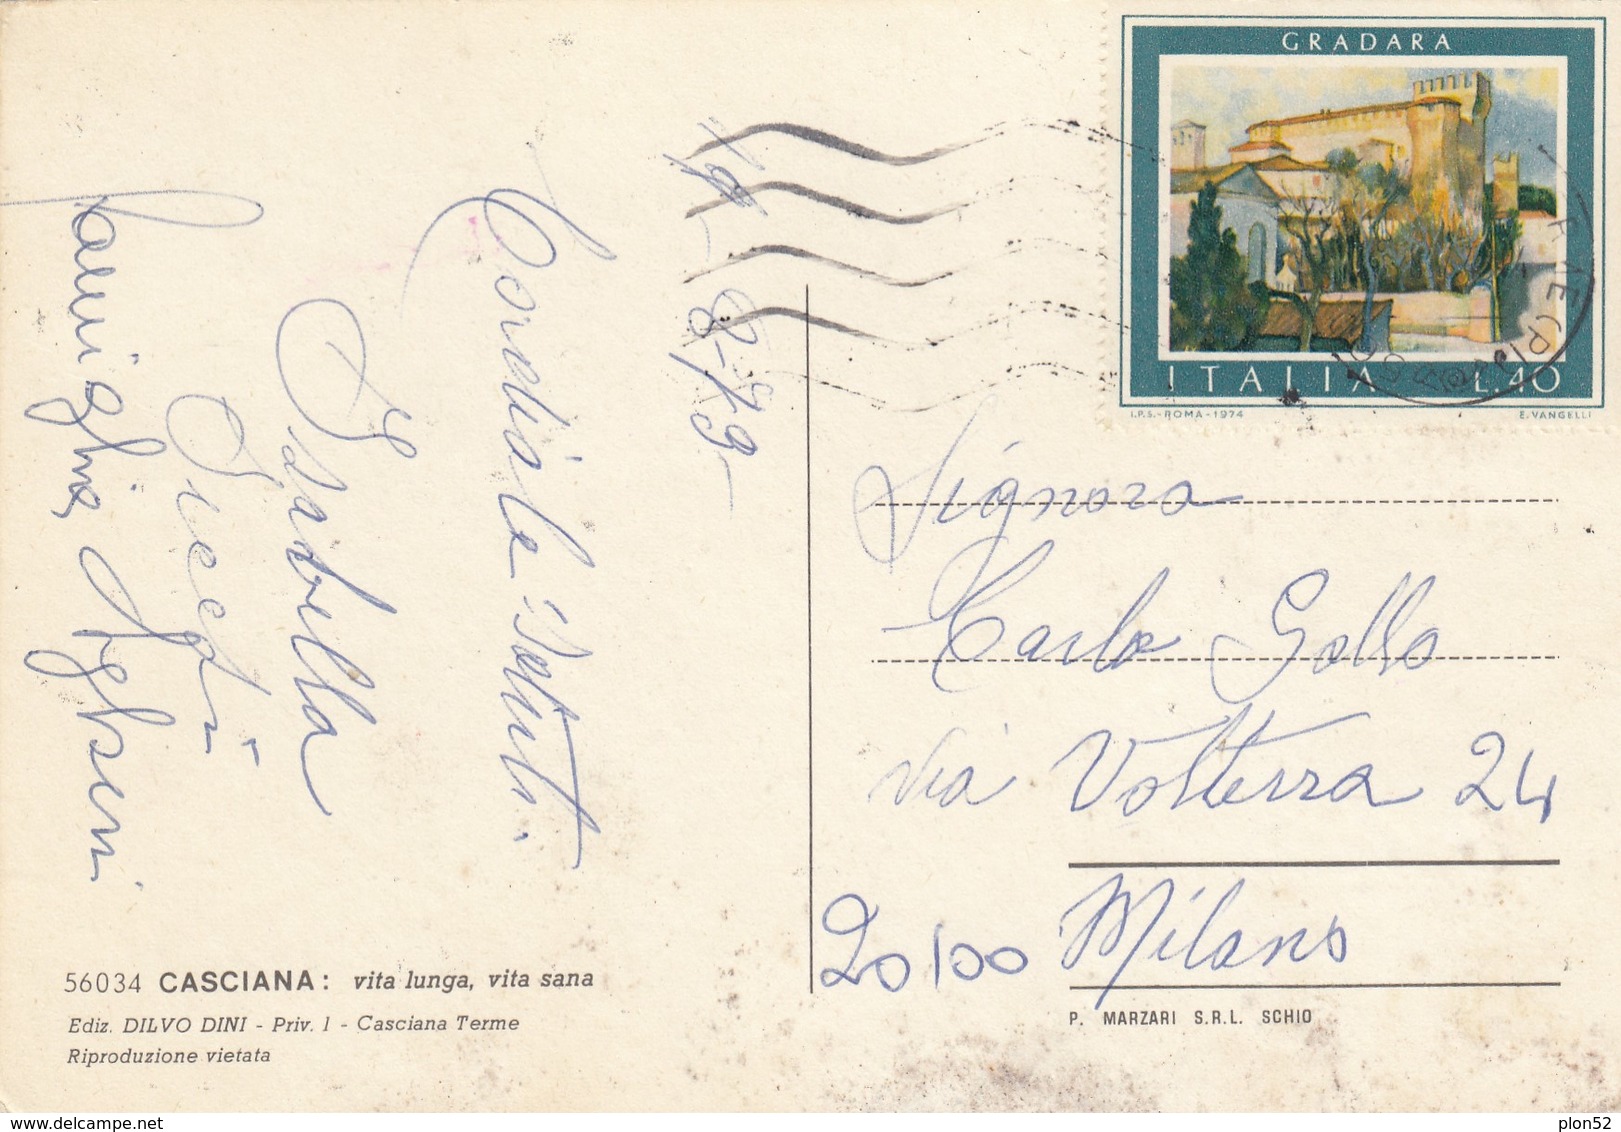 GRADARA
ITALIA L.40
I.P.S.-ROMA-1974 E. VANGELLI
Cordiali Saluti.
Isabella
famiglia
8-79-
Signora
Carlo Gallo
Via Volterra 24
20100 Milano
56034 CASCIANA: vita lunga, vita sana
Ediz. DILVO DINI - Priv. 1 - Casciana Terme
Riproduzione vietata
P. MARZARI S.R.L. SCHIO
plon52